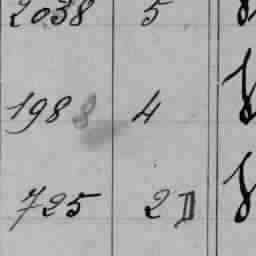 2038 5
1988 4
725 2